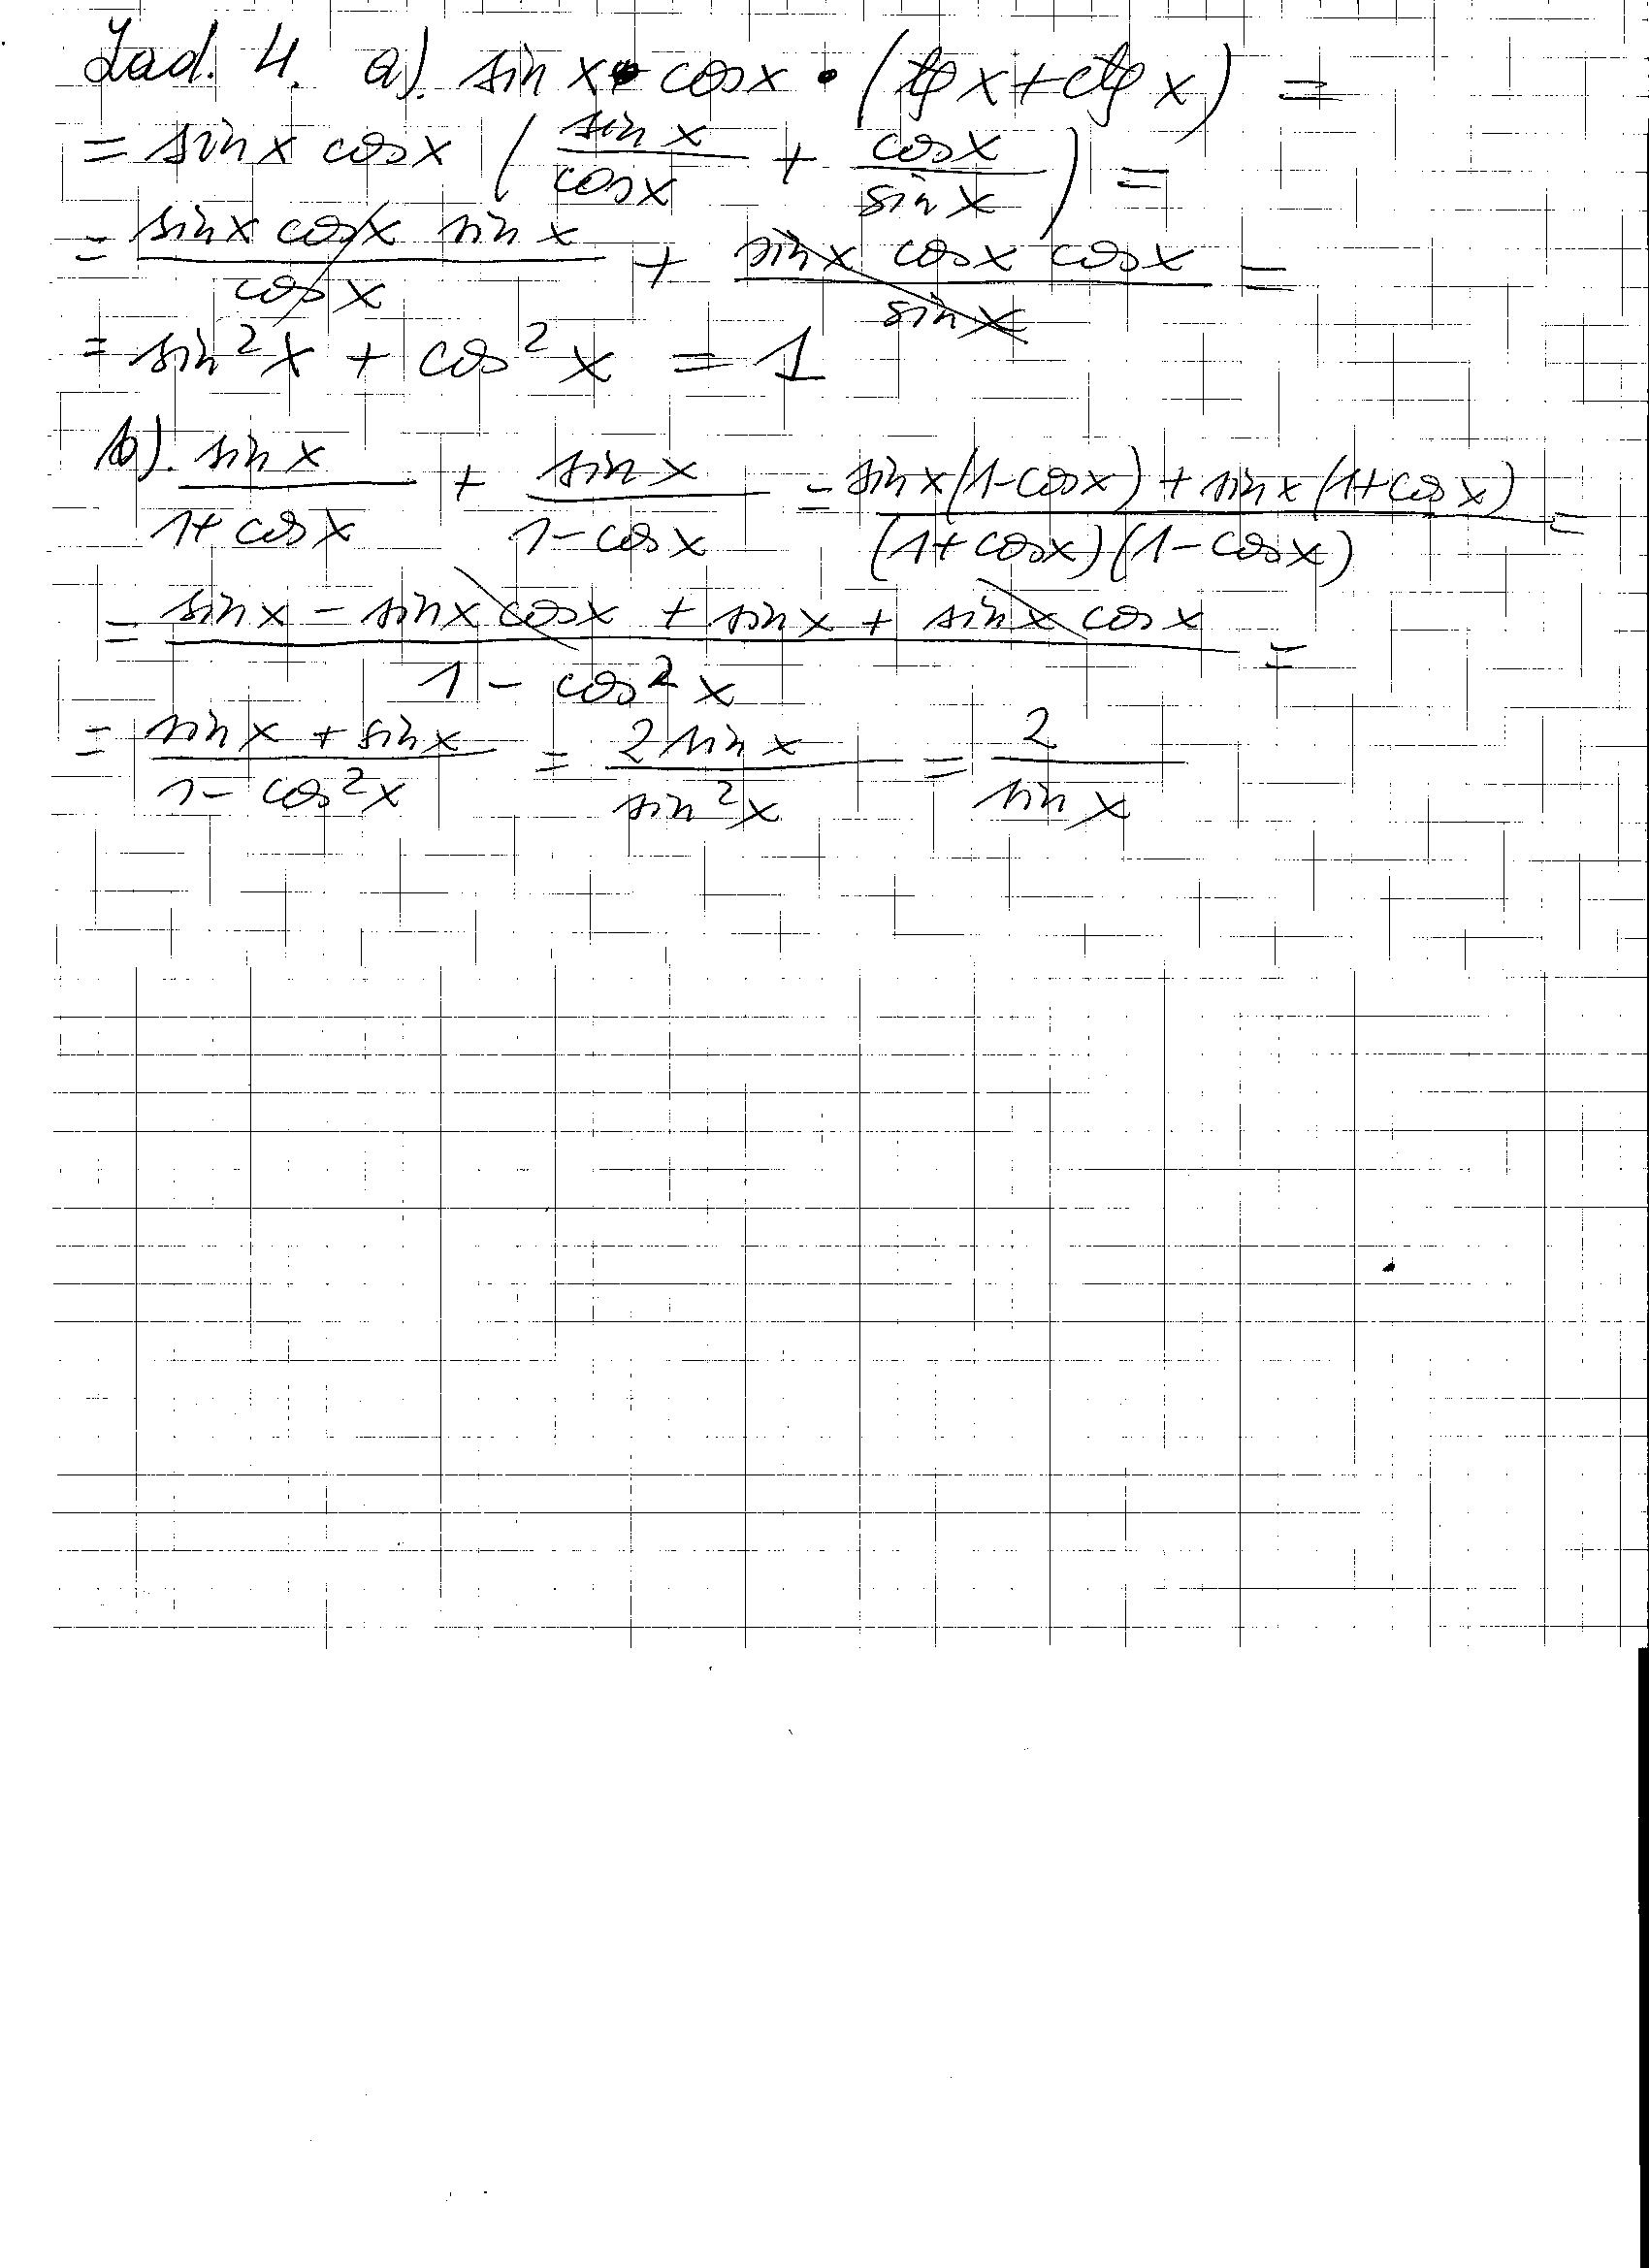 Zad. 4. a). sin x • cos x • (tg x + ctg x) =
= sin x cos x ( sin x / cos x + cos x / sin x ) =
= sin x cos x sin x / cos x + sin x cos x cos x / sin x =
= sin² x + cos² x = 1
b). sin x / 1 + cos x + sin x / 1 - cos x = sin x (1 - cos x) + sin x (1 + cos x) / (1 + cos x)(1 - cos x) =
= sin x - sin x cos x + sin x + sin x cos x / 1 - cos² x =
= sin x + sin x / 1 - cos² x = 2 sin x / sin² x = 2 / sin x